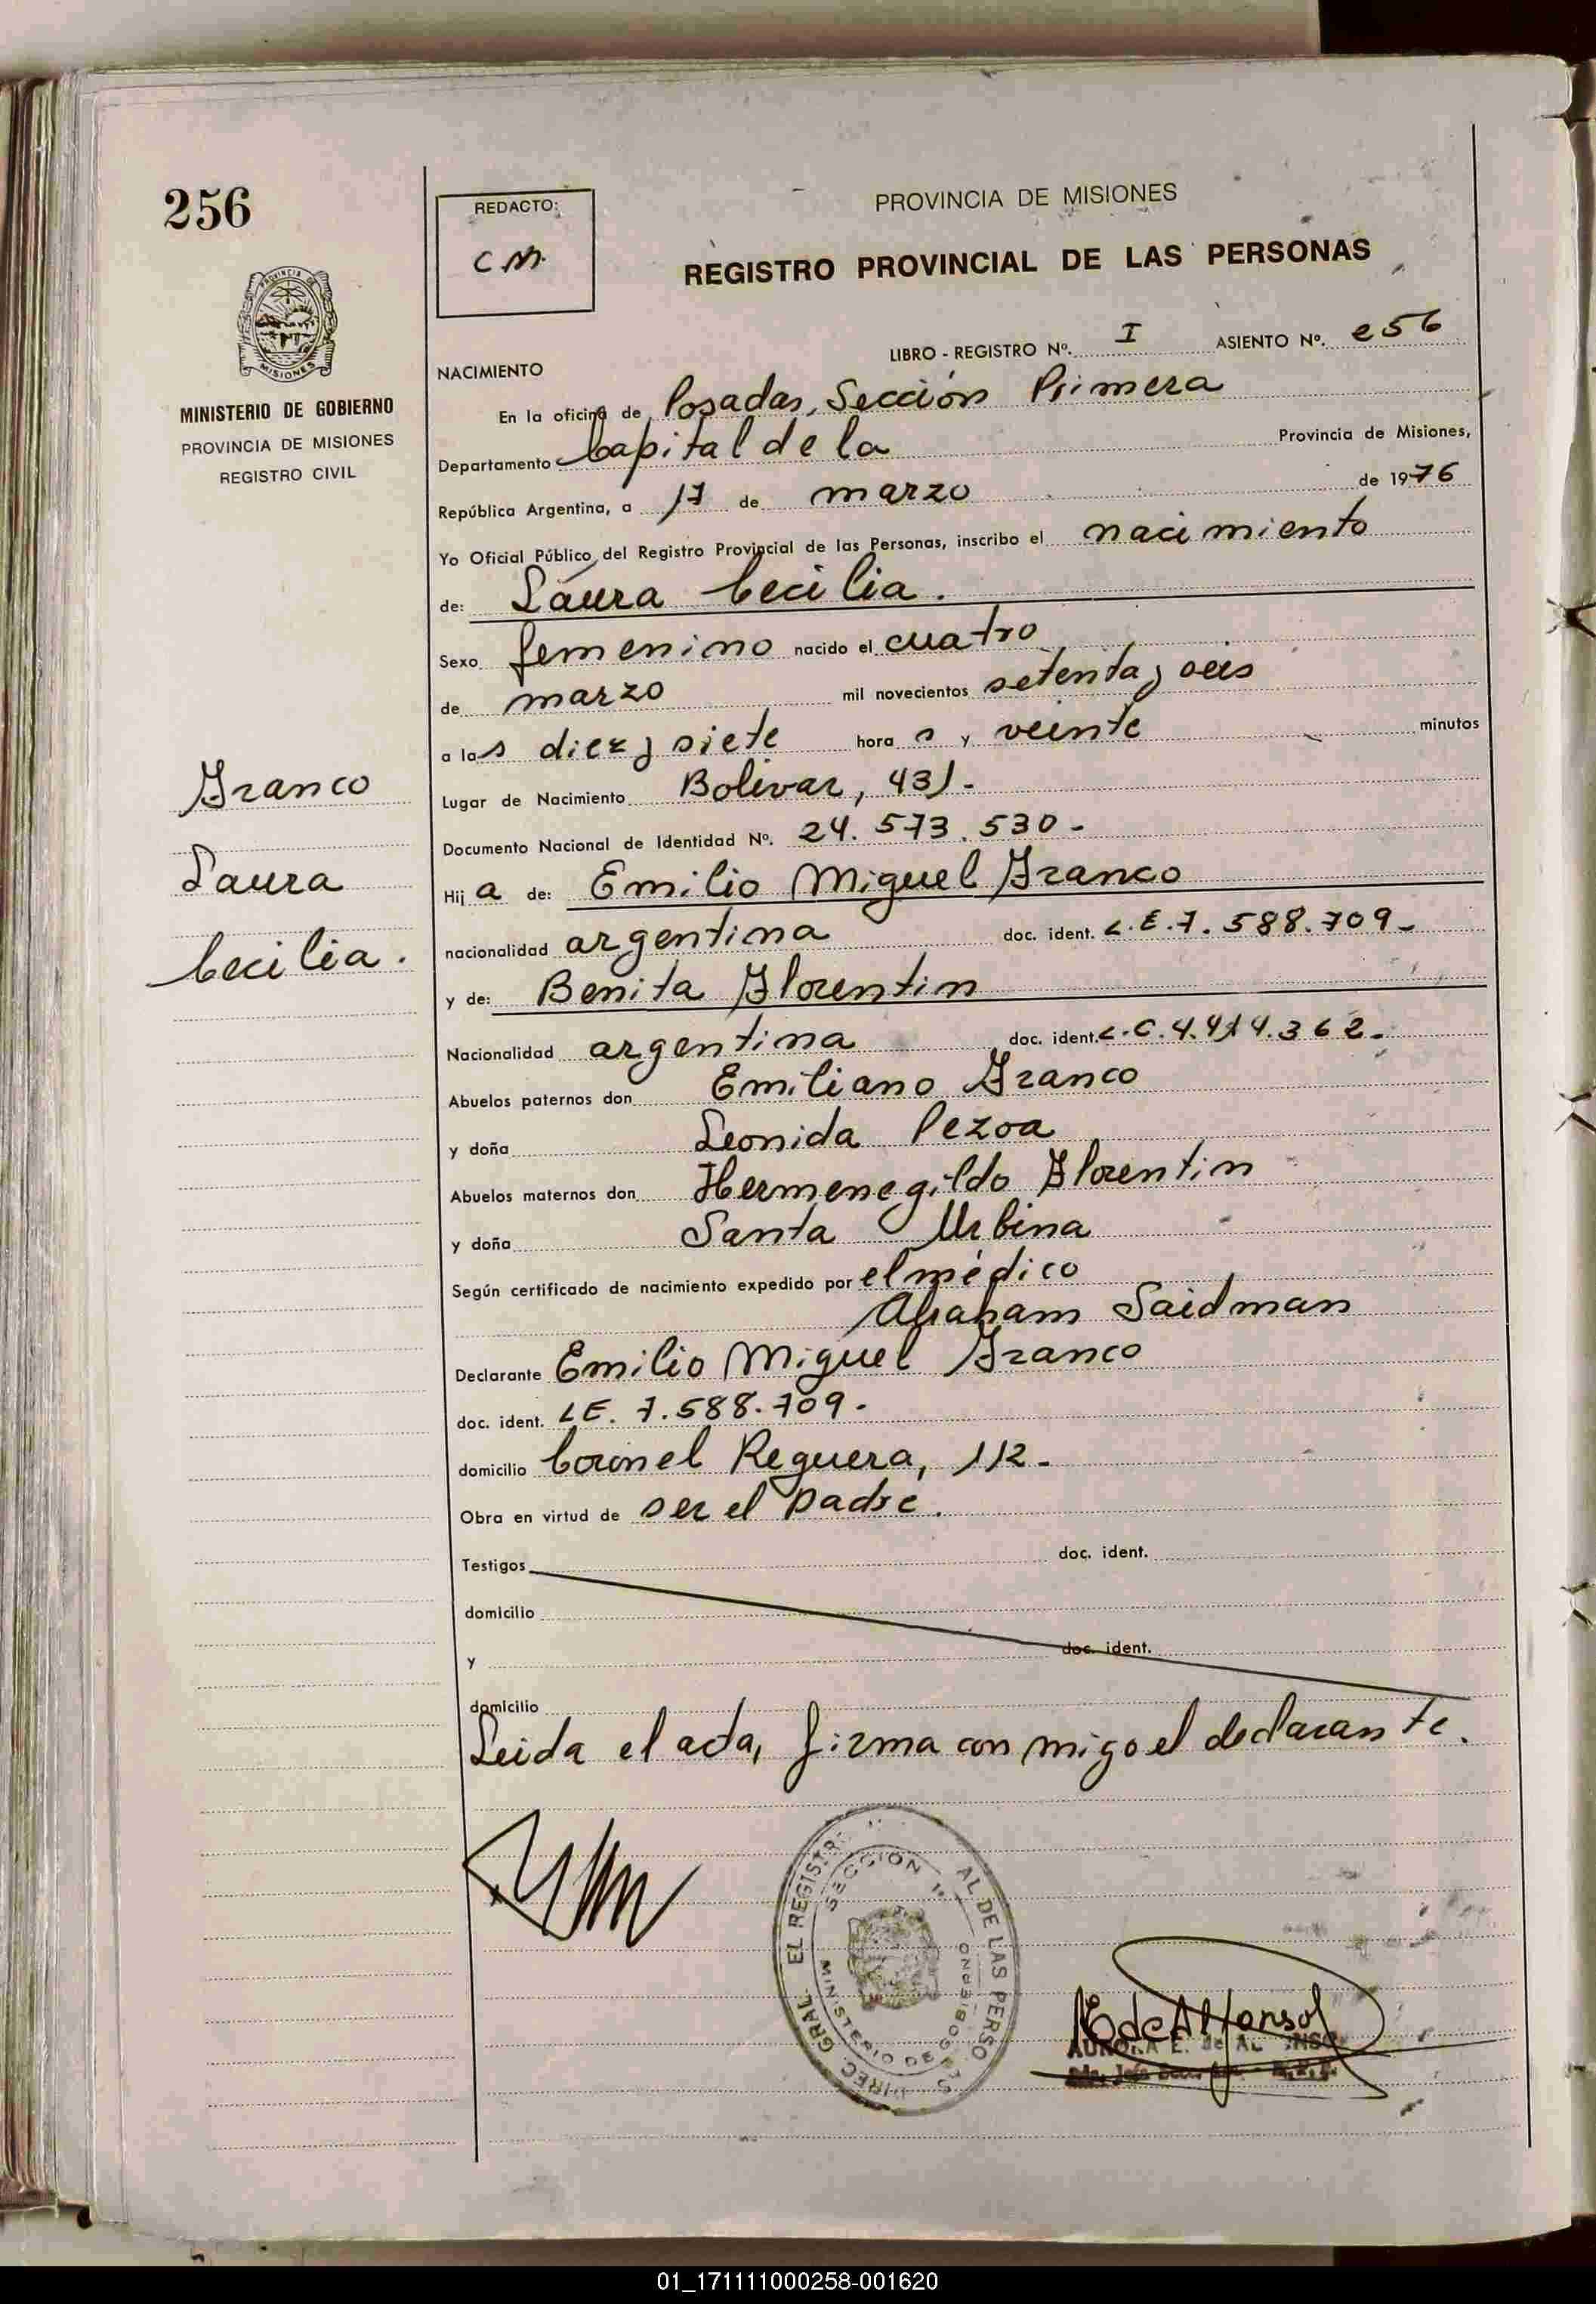 256
REDACTO:
C M.
PROVINCIA DE MISIONES
REGISTRO PROVINCIAL DE LAS PERSONAS
LIBRO - REGISTRO Nº. I ASIENTO Nº. 256
NACIMIENTO
PROVINCIA DE MISIONES
MINISTERIO DE GOBIERNO
PROVINCIA DE MISIONES
REGISTRO CIVIL
En la oficina de Posadas, Sección Primera
Departamento Capital de la Provincia de Misiones,
República Argentina, a 17 de marzo de 1976
Yo Oficial Público del Registro Provincial de las Personas, inscribo el nacimiento
de: Laura Cecilia.
Sexo femenino nacido el cuatro
de marzo mil novecientos setenta y seis
a las diez y siete hora s y veinte minutos
Franco
Laura
Cecilia.
Lugar de Nacimiento Bolívar, 431-
Documento Nacional de Identidad Nº. 24.573.530-
Hij a de: Emilio Miguel Franco
nacionalidad argentina doc. ident. L.E. 7.588.709-
y de: Benita Florentin
Nacionalidad argentina doc. ident. L.C. 4.414.362-
Abuelos paternos don Emiliano Franco
y doña Leonida Pezoa
Abuelos maternos don Hermenegildo Florentin
y doña Santa Urbina
Según certificado de nacimiento expedido por el médico
Abraham Saidman
Declarante Emilio Miguel Franco
doc. ident. LE. 7.588.709-
domicilio Coronel Reguera, 112-
Obra en virtud de ser el padre.
Testigos doc. ident.
domicilio
y doc. ident.
domicilio
Leida el acta, firma conmigo el declarante.
DIREC. GRAL. EL REGISTR AL DE LAS PERSO AS
SECCION 1º
MINISTERIO DE GOBIERNO
AURORA E. de AL NSO
01_171111000258-001620